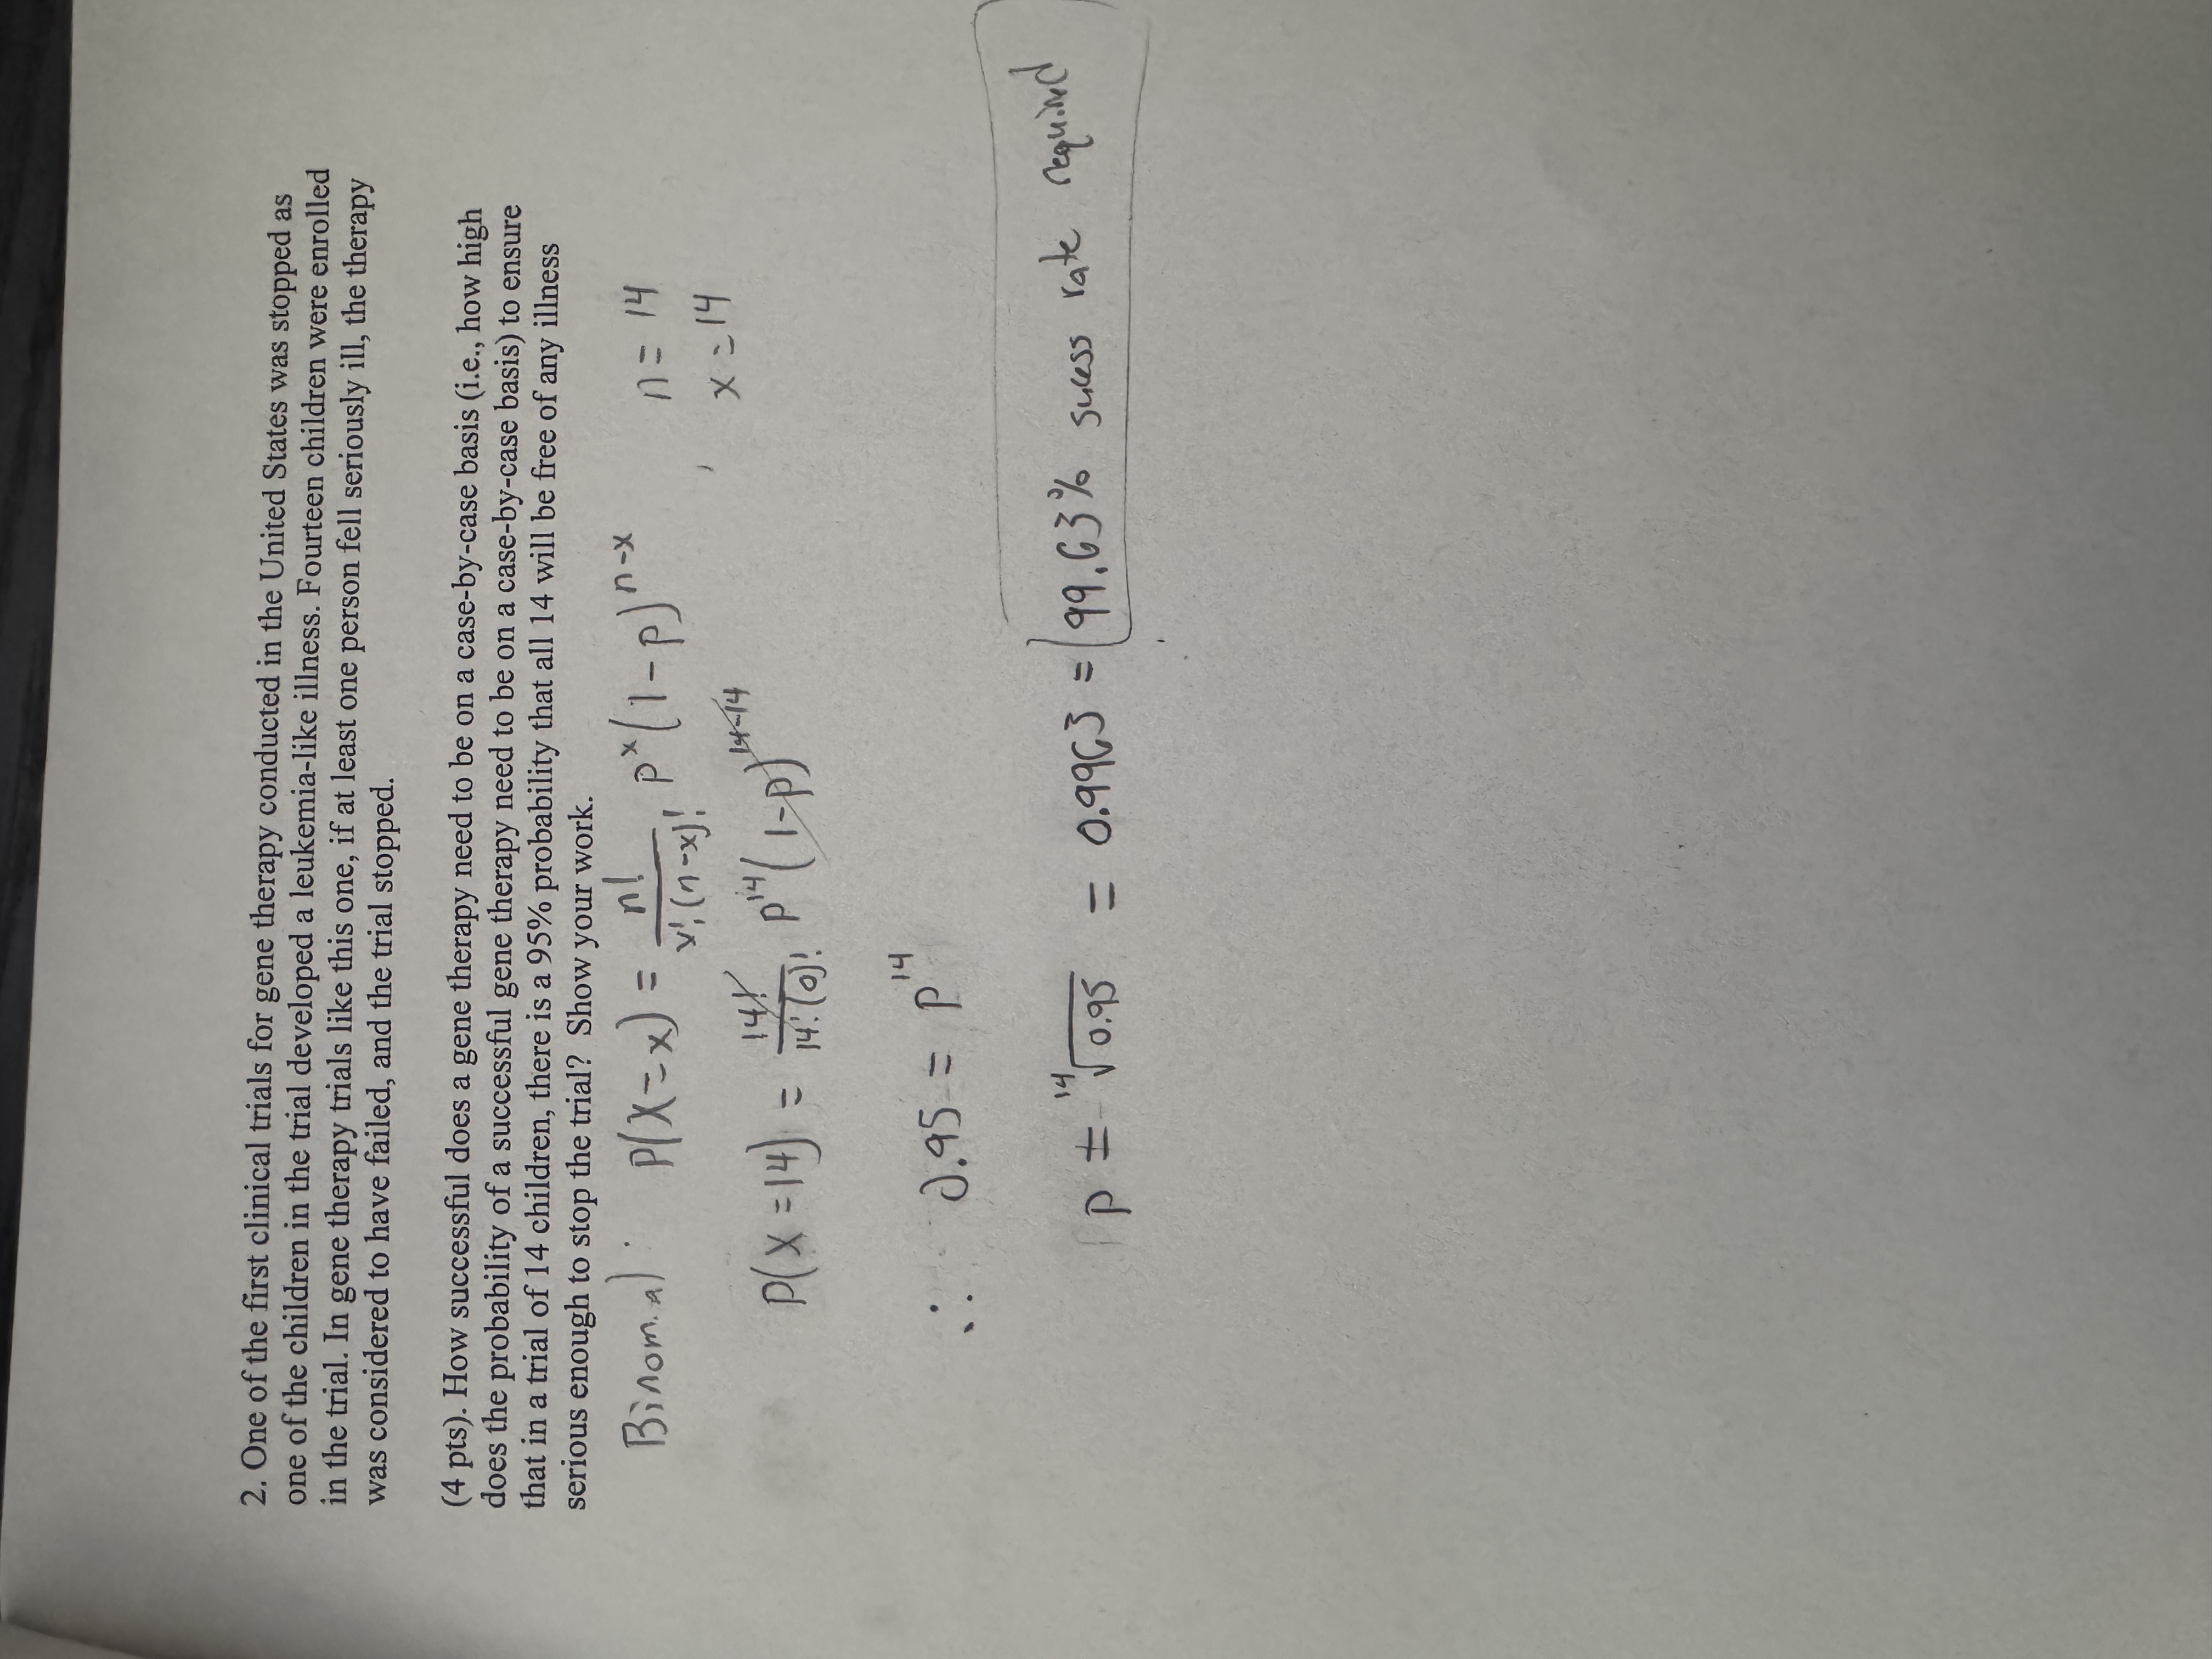 2. One of the first clinical trials for gene therapy conducted in the United States was stopped as
one of the children in the trial developed a leukemia-like illness. Fourteen children were enrolled
in the trial. In gene therapy trials like this one, if at least one person fell seriously ill, the therapy
was considered to have failed, and the trial stopped.
(4 pts). How successful does a gene therapy need to be on a case-by-case basis (i.e., how high
does the probability of a successful gene therapy need to be on a case-by-case basis) to ensure
that in a trial of 14 children, there is a 95% probability that all 14 will be free of any illness
serious enough to stop the trial? Show your work.
Binomial: P(X=x) = n!/x!(n-x)! p^x(1-p)^n-x n=14
x=14
P(X=14) = 14!/14!(0)! p^14(1-p)^14-14
∴ 0.95 = p^14
p = ± ¹⁴√0.95 = 0.9963 = 99.63% sucess rate required